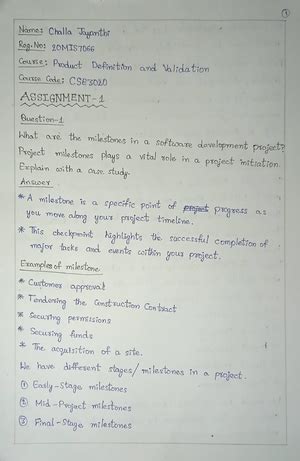 1
Name: Challa Jayanthi
Reg.No: 20MIS7066
Course: Product Definition and Validation
Course Code: CSE3020
ASSIGNMENT-1
Question-1
What are the milestones in a software development project?
Project milestones plays a vital role in a project initiation.
Explain with a case study.
Answer
* A milestone is a specific point of project progress as
you move along your project timeline.
* This checkpoint highlights the successful completion of
major tasks and events within your project.
Examples of milestone
* Customer approval
* Tendering the Construction Contract
* Securing permissions
* Securing funds
* The acquisition of a site.
We have different stages/milestones in a project.
① Early-Stage milestones
② Mid-Project milestones
③ Final-Stage milestones